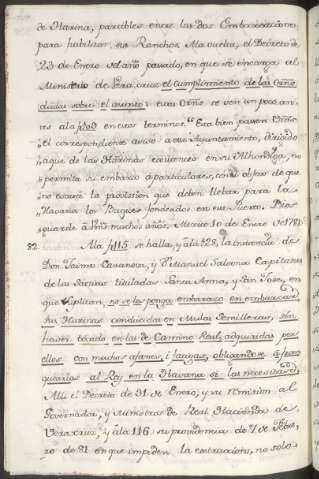 de Harina, partibles entre las dos Embarcaciones
para habilitar sus Ranchos. Ala vuelta, el Decreto de
23 de Enero del año pasado, en que se encarga al
Ministerio de Veracruz el cumplimiento de las Ordenes
dadas sobre el asunto: cuia Orden se ve un poco an-
tes ala f. en estos terminos. "Esta bien pasen Vmds
"el correspondiente aviso a ese Ayuntamiento, dirigido
"a que de las Harinas existentes en su Alhondiga, no
"permita su embarco a particulares, con el objeto de que
"no escaseé la provision que deben llebar para la
"Havana los Buques fondeados en ese Puerto. Dios
"guarde a Vmds muchos años. Mexico 10 de Enero de 1781.
82. Ala f. 115 se halla, y ála 128, la instancia de
Don Jaime y Miguel Capitanes
de las Saetias tituladas Santa Anna, y San José, en
que suplican, no se les ponga embarazo en embarcar
las Harinas conducidas en Mulas Semilleras, por
haver tocado en las de Camino Real, adquiridas por
ellos con muchos afanes, i fatigas, obligandose á fran-
quearlas al Rey en la Havana si las necesitase.
Alli el Decreto de 31 de Enero, y su remision al
Governador, y Ministros de Real Hacienda de
Veracruz; y ála 116 su providencia de 7 de Febre-
ro de 81 en que impiden la extraccion, no solo